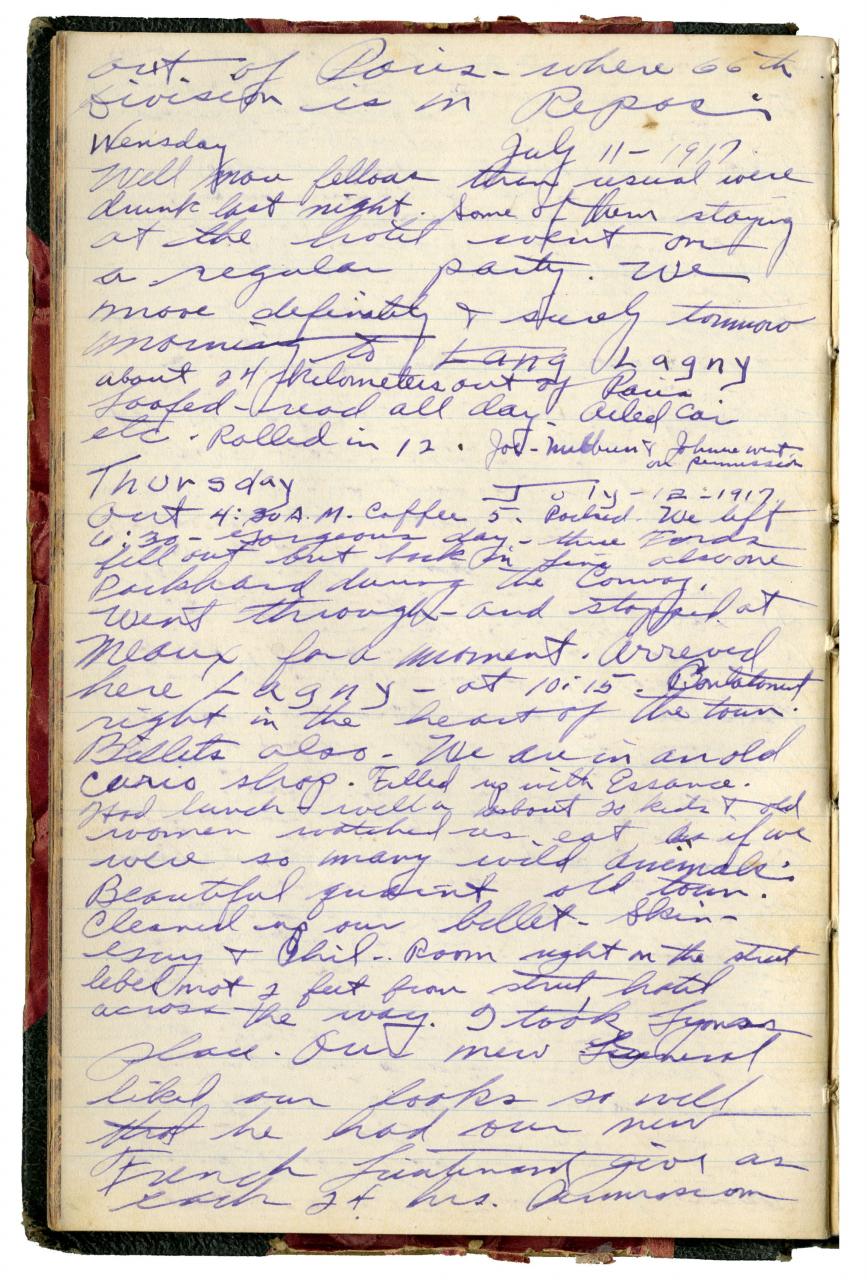 out of Paris - where 66th
Division is in Repos.
Wensday July 11 - 1917.
Well more fellows than usual were
drunk last night. Some of them staying
at the hotel went on
a regular party. We
move definitely & surely tomorrow
morning to Lang Lagny
about 24 kilometers out of Paris
Loafed - read all day. Oiled car
etc. Rolled in 12. Joe - Milburn & Johnie went
on permission
Thursday July - 12 - 1917
Out 4:30 A.M. Coffee 5. Packed. We left
6:30 - Gorgeous day - three Fords
fell out but back in line also one
Packhard during the Convoy.
Went through - and stopped at
Meaux for a moment. Arreved
here Lagny - at 10:15.
right in the heart of the town.
Billets also - We are in an old
curio shop. Filled up with Essance.
Had lunch & well about 20 kids & old
women watched us eat as if we
were so many wild animals.
Beautiful quaint old town.
Cleaned up our billet - Skin-
& Phil -. Room right on the street
lebel not 2 feet from street hotel
across the way. I took Lymans
place. Our new General
liked our looks so well
that he had our new
French Lieutenant give us
each 24 hrs. Permission